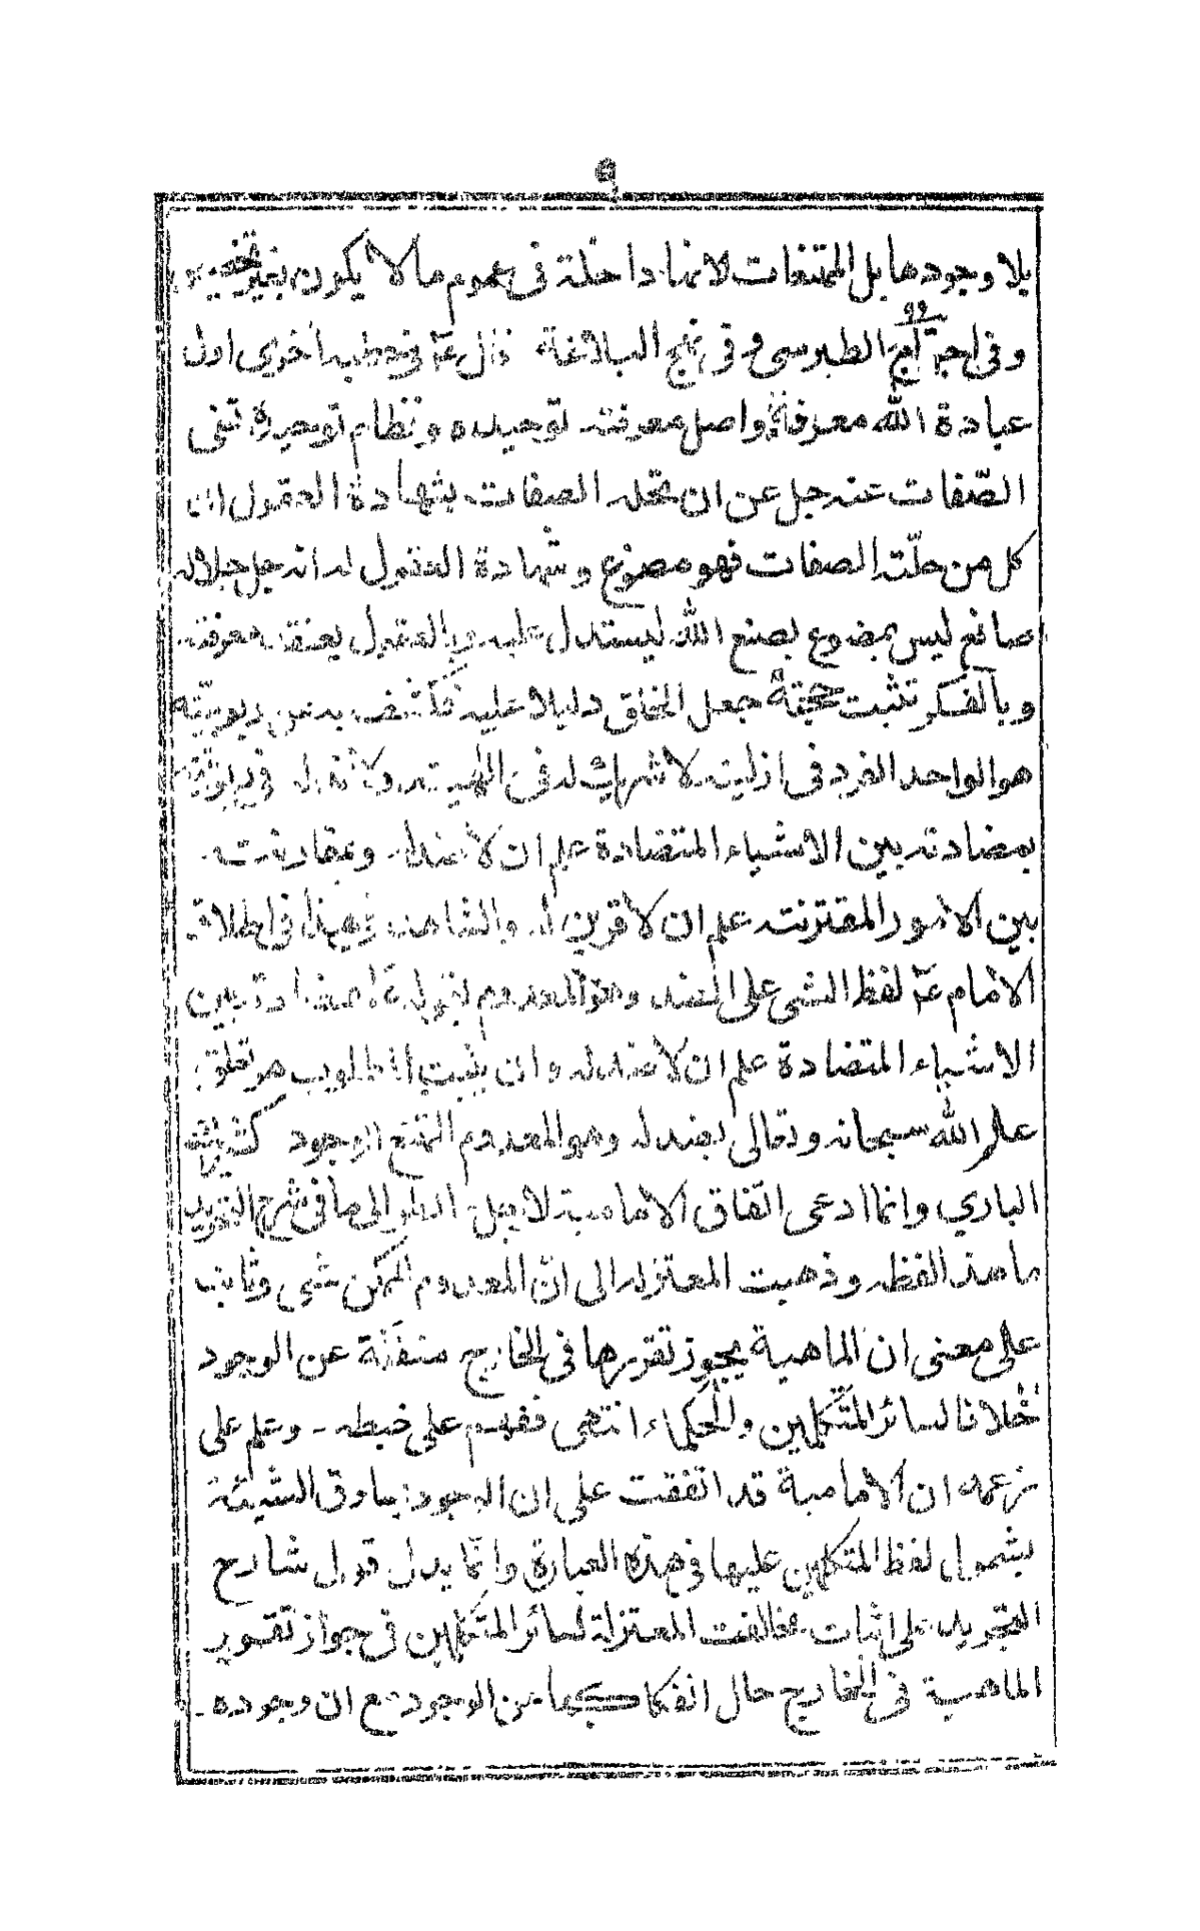 ٩
بلا وجودها بل الممتنعات لانها داخلة فى عموم ما لا يكون بغير
وفى احتجاج الطبرسى و فى نهج البلاغة قال عم فى خطبه اخرى اول
عبادة الله معرفته واصل معرفته توحيده ونظام توحيده نفى
الصّفات عنه جل عن ان تحله الصفات بشهادة العقول ان
كل من حلّته الصفات فهو مصنوع وشهادة العقول له انه جل جلاله
صانع ليس بمصنوع بصنع الله ليستدل عليه وبالعقول يعتقد معرفته
وبالفكر تثبت حجّته جعل الخلق دليلا عليه فكشف به عن ربوبيّته
هو الواحد الفرد فى ازليته لا شريك له فى الهيته ولا ند له فى ربوبيّته
بمضادته بين الاشياء المتضادة علم ان لا ضد له وبمقارنته
بين الامور المقترنته علم ان لا قرين له والشاهد فى هذا فى اطلاق
الامام عم لفظ الشى على الضد وهو المعدوم بقوله بمضادته بين
الاشياء المتضادة علم ان لا ضد له وان يثبت المطلوب من تعلق
علم الله سبحانه وتعالى بضد له وهو المعدوم الممتنع الوجود كشريك
الباري وانما ادعى اتّفاق الامامية لاجل النظر الى ما فى شرح التجريد
ما هذا لفظه وذهبت المعتزله الى انّ المعدوم الممكن شى وثابت
على معنى ان الماهية يجوز تقررها فى الخارج منفكّة عن الوجود
خلافا لسائر المتكلمين والحكماء انتهى ففهم على خبطه - وعلم على
زعمه ان الامامية قد اتفقت على ان الوجود يساوق الشيئة
بشمول لفظ المتكلمين عليها فى هذه العبارة وانّما يدل قول شارح
التجريد على اثبات مخالفت المعتزلة لسائر المتكلمين فى جواز تقرير
الماهية فى الخارج حال انفكاكها عن الوجود مع ان وجوده -